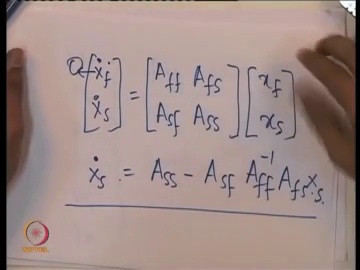 0 ← [ẋf ẋs] = [Aff Afs Asf Ass] [xf xs]
ẋs = Ass - Asf Aff⁻¹ Afs xs.
NPTEL